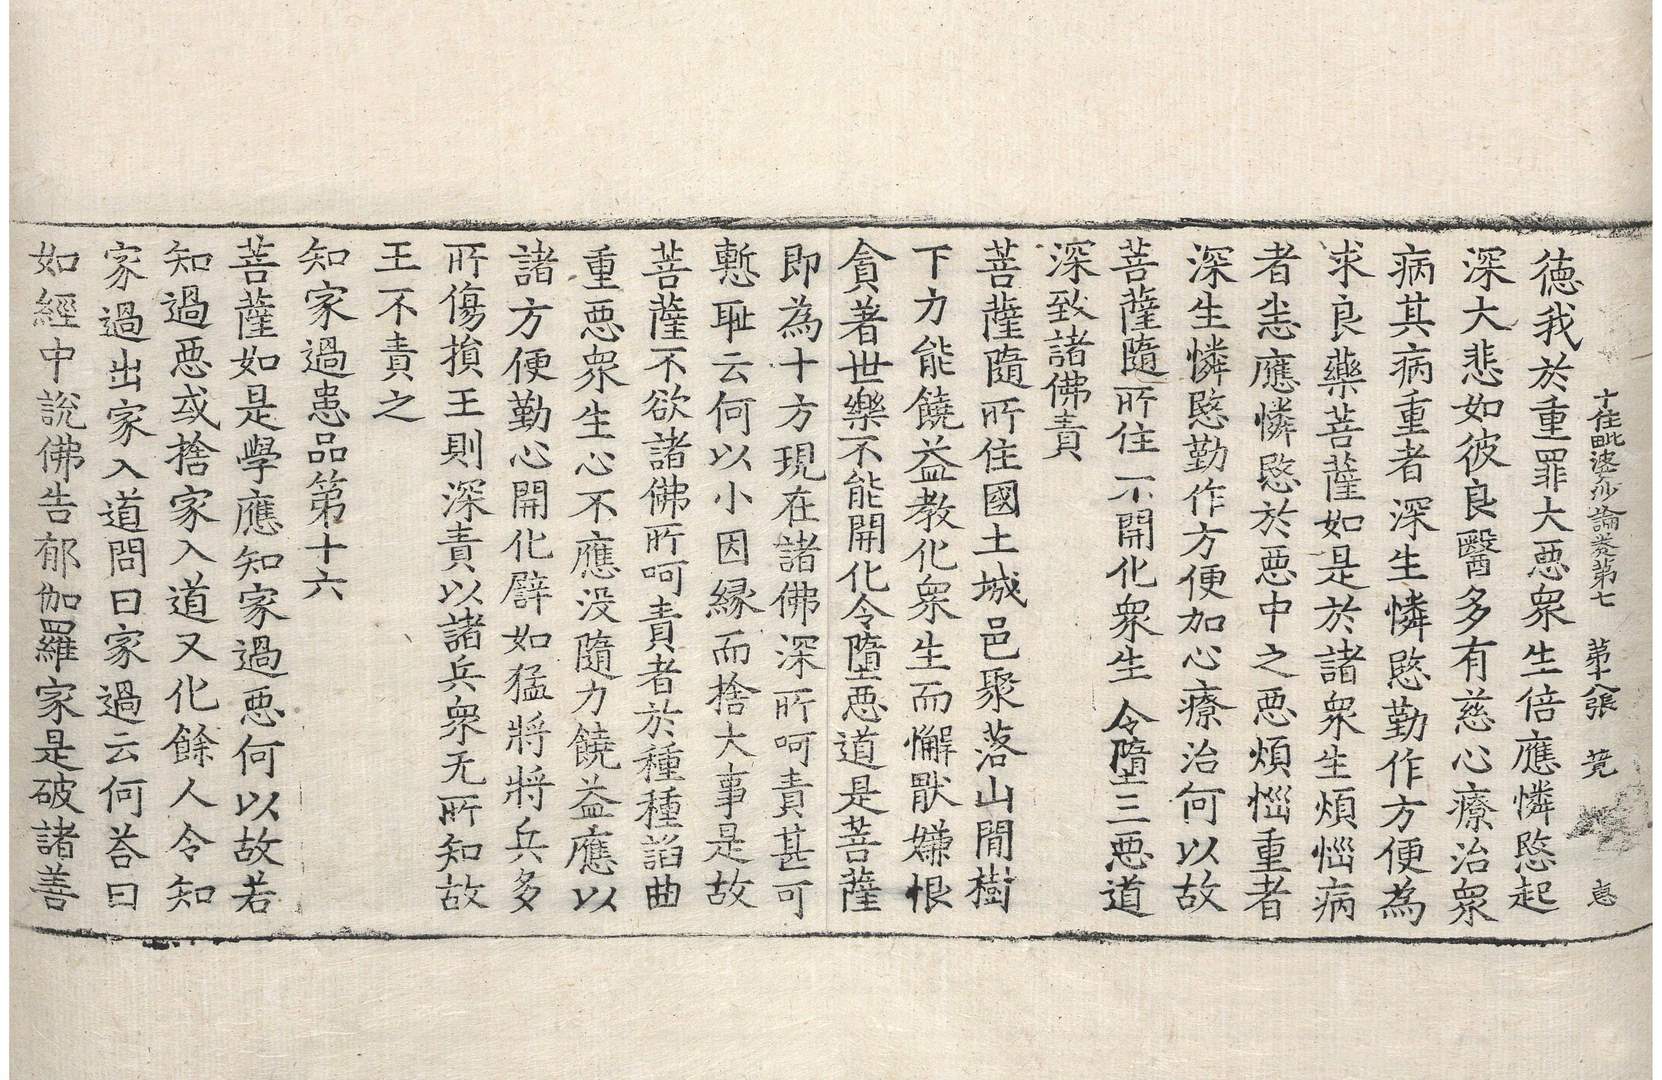 十住毗婆沙論卷第七 第十八張 惠
德我於重罪大惡衆生倍應憐愍起
深大悲如彼良醫多有慈心療治衆
病其病重者深生憐愍勤作方便為
求良藥菩薩如是於諸衆生煩惱病
者悲應憐愍於惡中之惡煩惱重者
深生憐愍勤作方便加心療治何以故
菩薩隨所住 不開化衆生 令墮三惡道
深致諸佛責
菩薩隨所住國土城邑聚落山間樹
下力能饒益教化衆生而懈猒嫌恨
貪著世樂不能開化令墮惡道是菩薩
即為十方現在諸佛深所呵責甚可
慙耻云何以小因緣而捨大事是故
菩薩不欲諸佛所呵責者於種種諂曲
重惡衆生心不應没隨力饒益應以
諸方便勤心開化譬如猛將將兵多
所傷損王則深責以諸兵衆无所知故
王不責之
知家過患品第十六
菩薩如是學應知家過惡何以故若
知過惡或捨家入道又化餘人令知
家過出家入道問曰家過云何荅曰
如經中說佛告郁伽羅家是破諸善